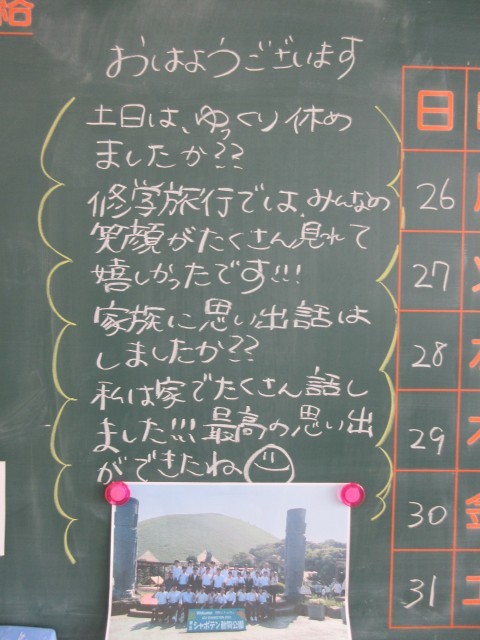 給
おはようございます
土日は、ゆっくり休め
ましたか??
修学旅行では、みんなの
笑顔がたくさん見れて
嬉しかったです!!!
家族に思い出話は
しましたか??
私は家でたくさん話し
ました!!! 最高の思い出
ができたね
日
26
27
28
29
30 金
31 土
シャボテン動物公園